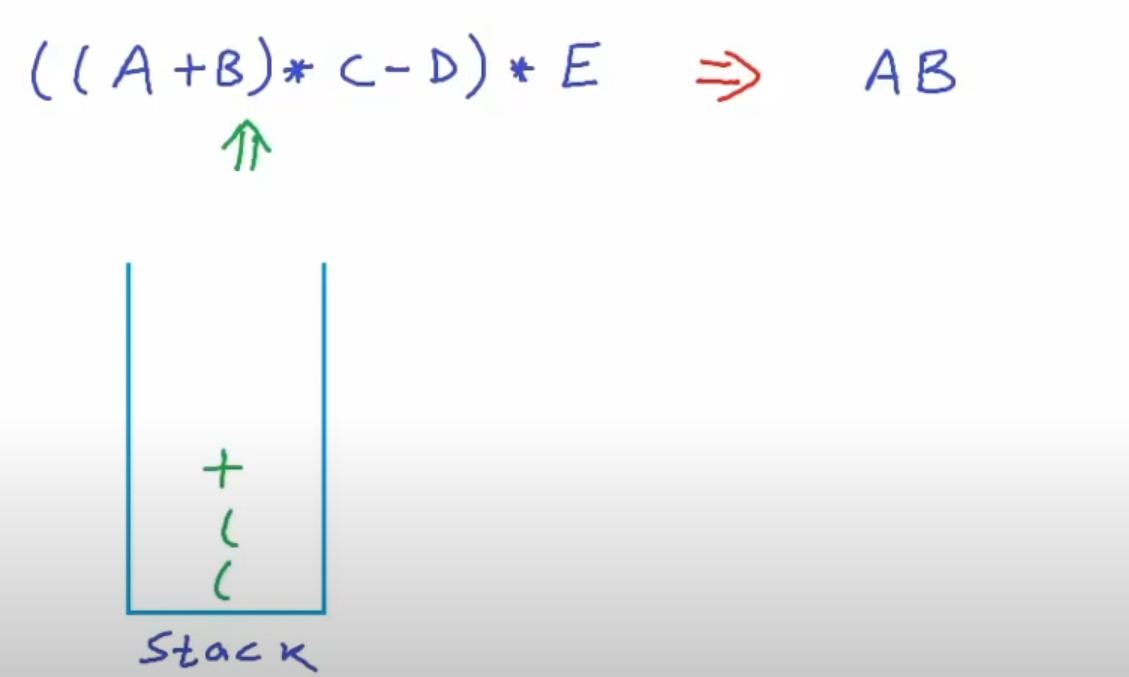 ((A+B)* C-D)* E ⇒ AB
+
(
(
Stack